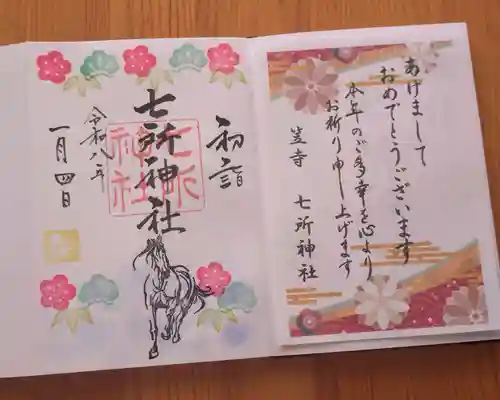 あげまして
おめでとうございます
本年のご多幸を心より
お祈り申し上げます
笠寺 七所神社
初詣
七所神社
七所神社
令和八年
一月四日